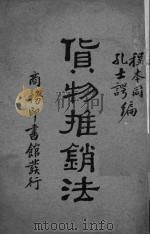 孔士諤編
貨物推銷法
商務印書館發行
mtoou.info